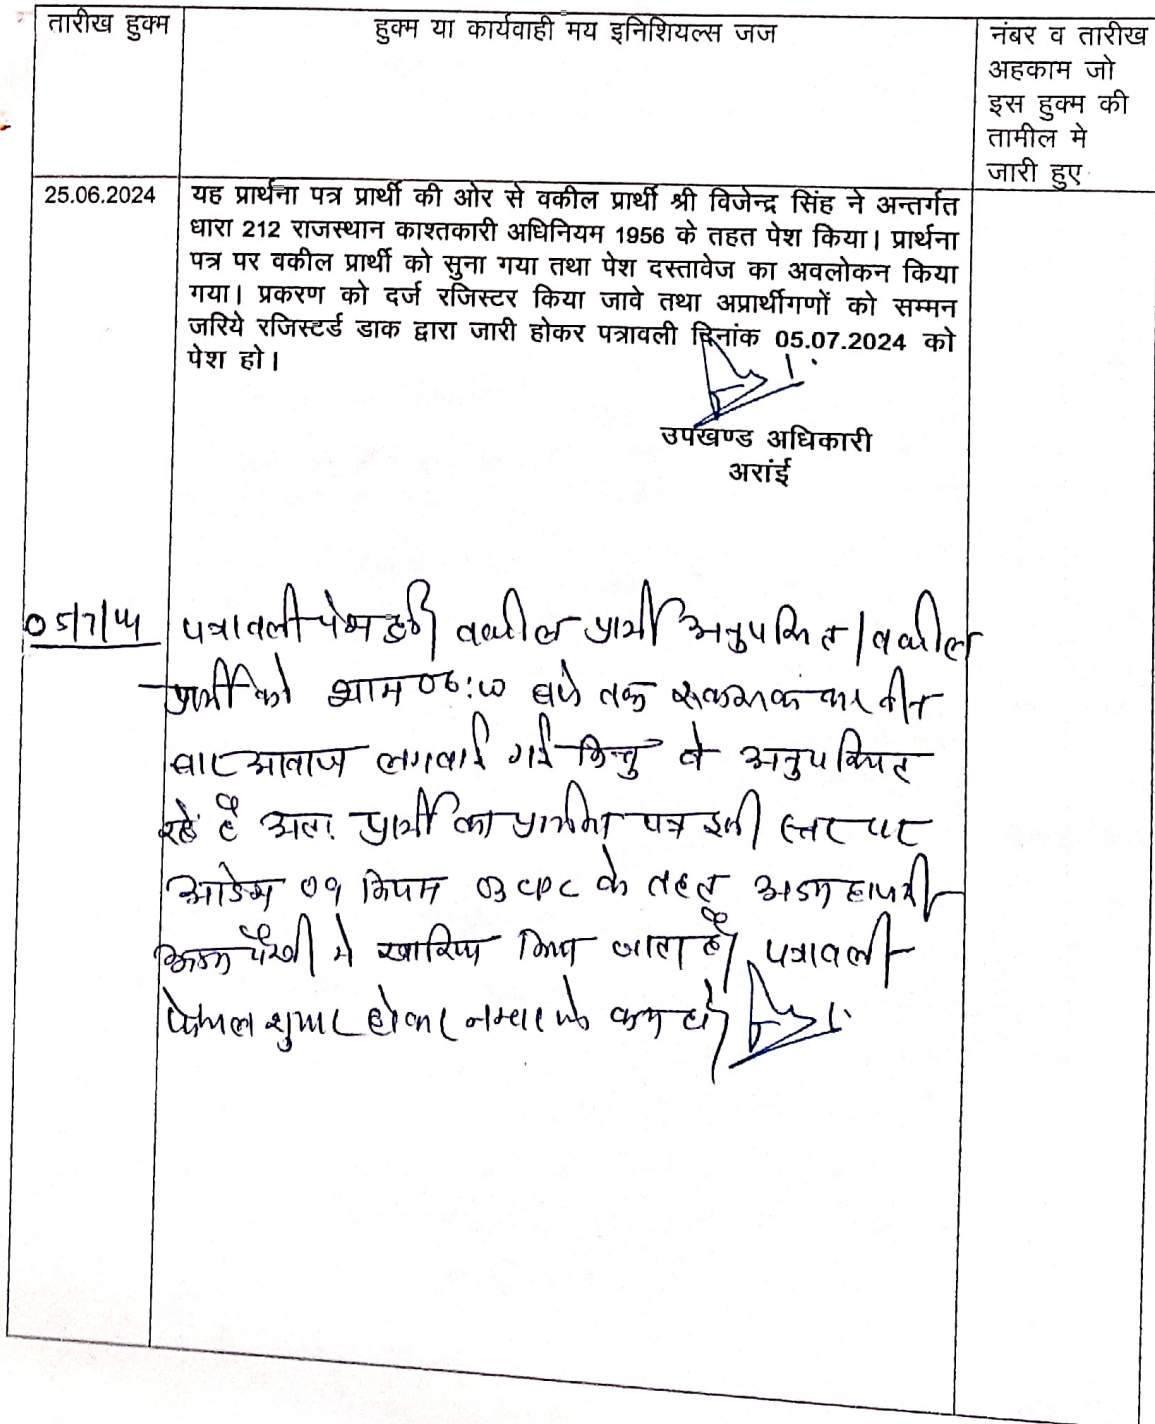 तारीख हुक्म
हुक्म या कार्यवाही मय इनिशियल्स जज
नंबर व तारीख
अहकाम जो
इस हुक्म की
तामील मे
जारी हुए
25.06.2024
यह प्रार्थना पत्र प्रार्थी की ओर से वकील प्रार्थी श्री विजेन्द्र सिंह ने अन्तर्गत
धारा 212 राजस्थान काश्तकारी अधिनियम 1956 के तहत पेश किया। प्रार्थना
पत्र पर वकील प्रार्थी को सुना गया तथा पेश दस्तावेज का अवलोकन किया
गया। प्रकरण को दर्ज रजिस्टर किया जावे तथा अप्रार्थीगणों को सम्मन
जरिये रजिस्टर्ड डाक द्वारा जारी होकर पत्रावली दिनांक 05.07.2024 को
पेश हो।
उपखण्ड अधिकारी
अरांई
05/7/24
पत्रावली पेश हुई। वकील प्रार्थी अनुपस्थित। वकील
प्रार्थी को शाम 06:00 बजे तक रुक रुक कर तीन
बार आवाज लगवाई गई किन्तु वे अनुपस्थित
रहे है अतः प्रार्थी का प्रार्थना पत्र इसी स्तर पर
आदेश 09 नियम 03 CPC के तहत अदम हाजरी
अदम पैरवी मे खारिज किया जाता है। पत्रावली
फैसल शुमार होकर नम्बर से कम हो।